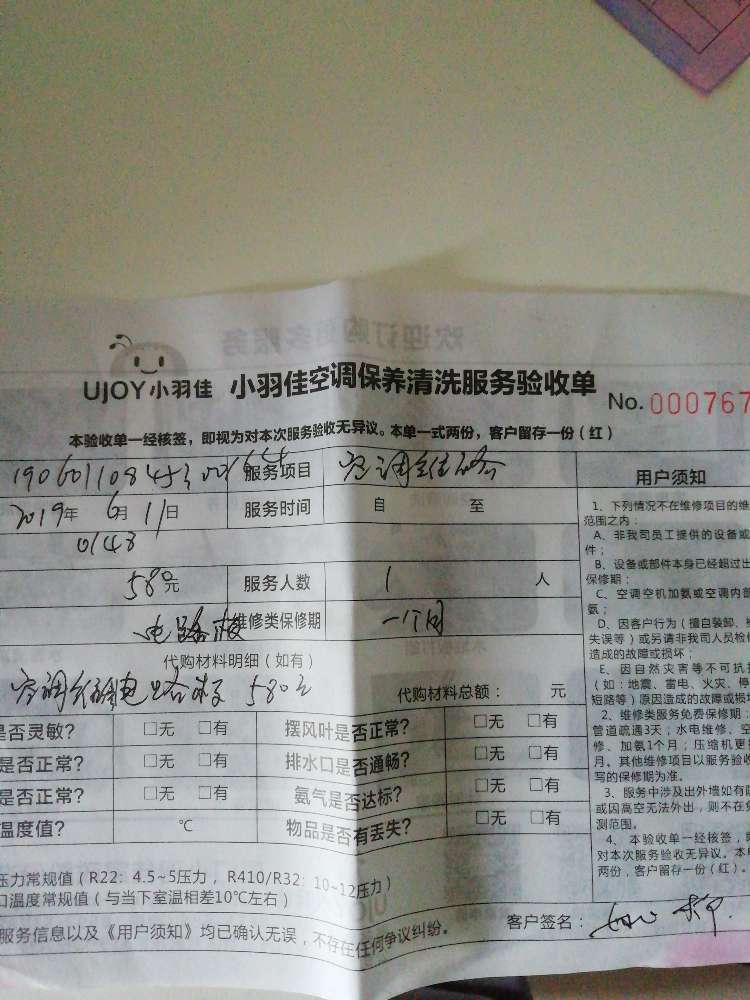 欢迎订购更多服务
UJOY小羽佳 小羽佳空调保养清洗服务验收单
No. 000767
本验收单一经核签，即视为对本次服务验收无异议。本单一式两份，客户留存一份（红）
服务项目 空调维修 用户须知
2019年 6月 11日 服务时间 自 至
0143
580元 服务人数 1 人
电路板 维修类保修期 一个月
代购材料明细（如有）
空调维修电路板 580元 代购材料总额： 元
是否灵敏？ □无 □有 摆风叶是否正常？ □无 □有
是否正常？ □无 □有 排水口是否通畅？ □无 □有
是否正常？ □无 □有 氨气是否达标？ □无 □有
温度值？ ℃ 物品是否有丢失？ □无 □有
压力常规值（R22：4.5~5压力，R410/R32：10~12压力）
口温度常规值（与当下室温相差10℃左右）
服务信息以及《用户须知》均已确认无误，不存在任何争议纠纷。
客户签名：
1、下列情况不在维修项目的维
范围之内：
A、非我司员工提供的设备或
件；
B、设备或部件本身已经超过出
保修期；
C、空调空机加氨或空调内部
氨；
D、因客户行为（擅自装卸、
失误等）或另请非我司人员检修
造成的故障或损坏；
E、因自然灾害等不可抗
（如：地震、雷电、火灾、停
短路等）原因造成的故障或损坏
2、维修类服务免费保修期：
管道疏通3天；水电维修、空
修、加氨1个月；压缩机更
月。其他维修项目以服务验收
写的保修期为准。
3、服务中涉及出外墙如有
或因高空无法外出，则不在
测范围。
4、本验收单一经核签，
对本次服务验收无异议。本单
两份，客户留存一份（红）。